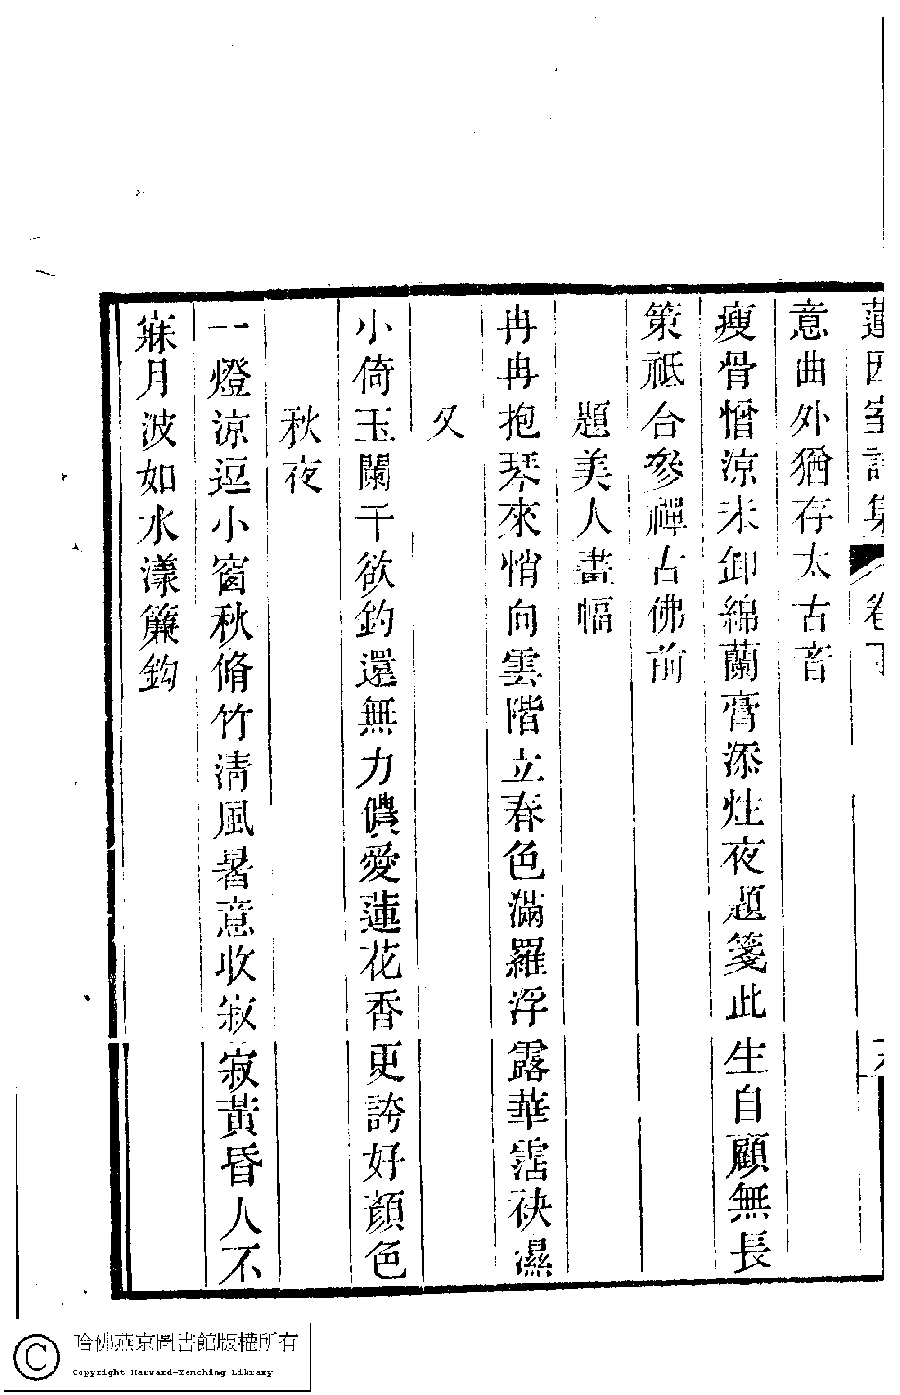 蓮因室詩集 卷下
意曲外猶存太古音
瘦骨憎涼未卸綿蘭膏添炷夜題箋此生自顧無長
策祇合參禪古佛前
題美人畫幅
冉冉抱琴來悄向雲階立春色滿羅浮露華霑袂濕
又
小倚玉闌干欲釣還無力儂愛蓮花香更誇好顏色
秋夜
一燈涼逗小窗秋脩竹清風暑意收寂寂黃昏人不
寐月波如水漾簾鈎
哈佛燕京圖書館版權所有
Copyright Harvard-Yenching Library